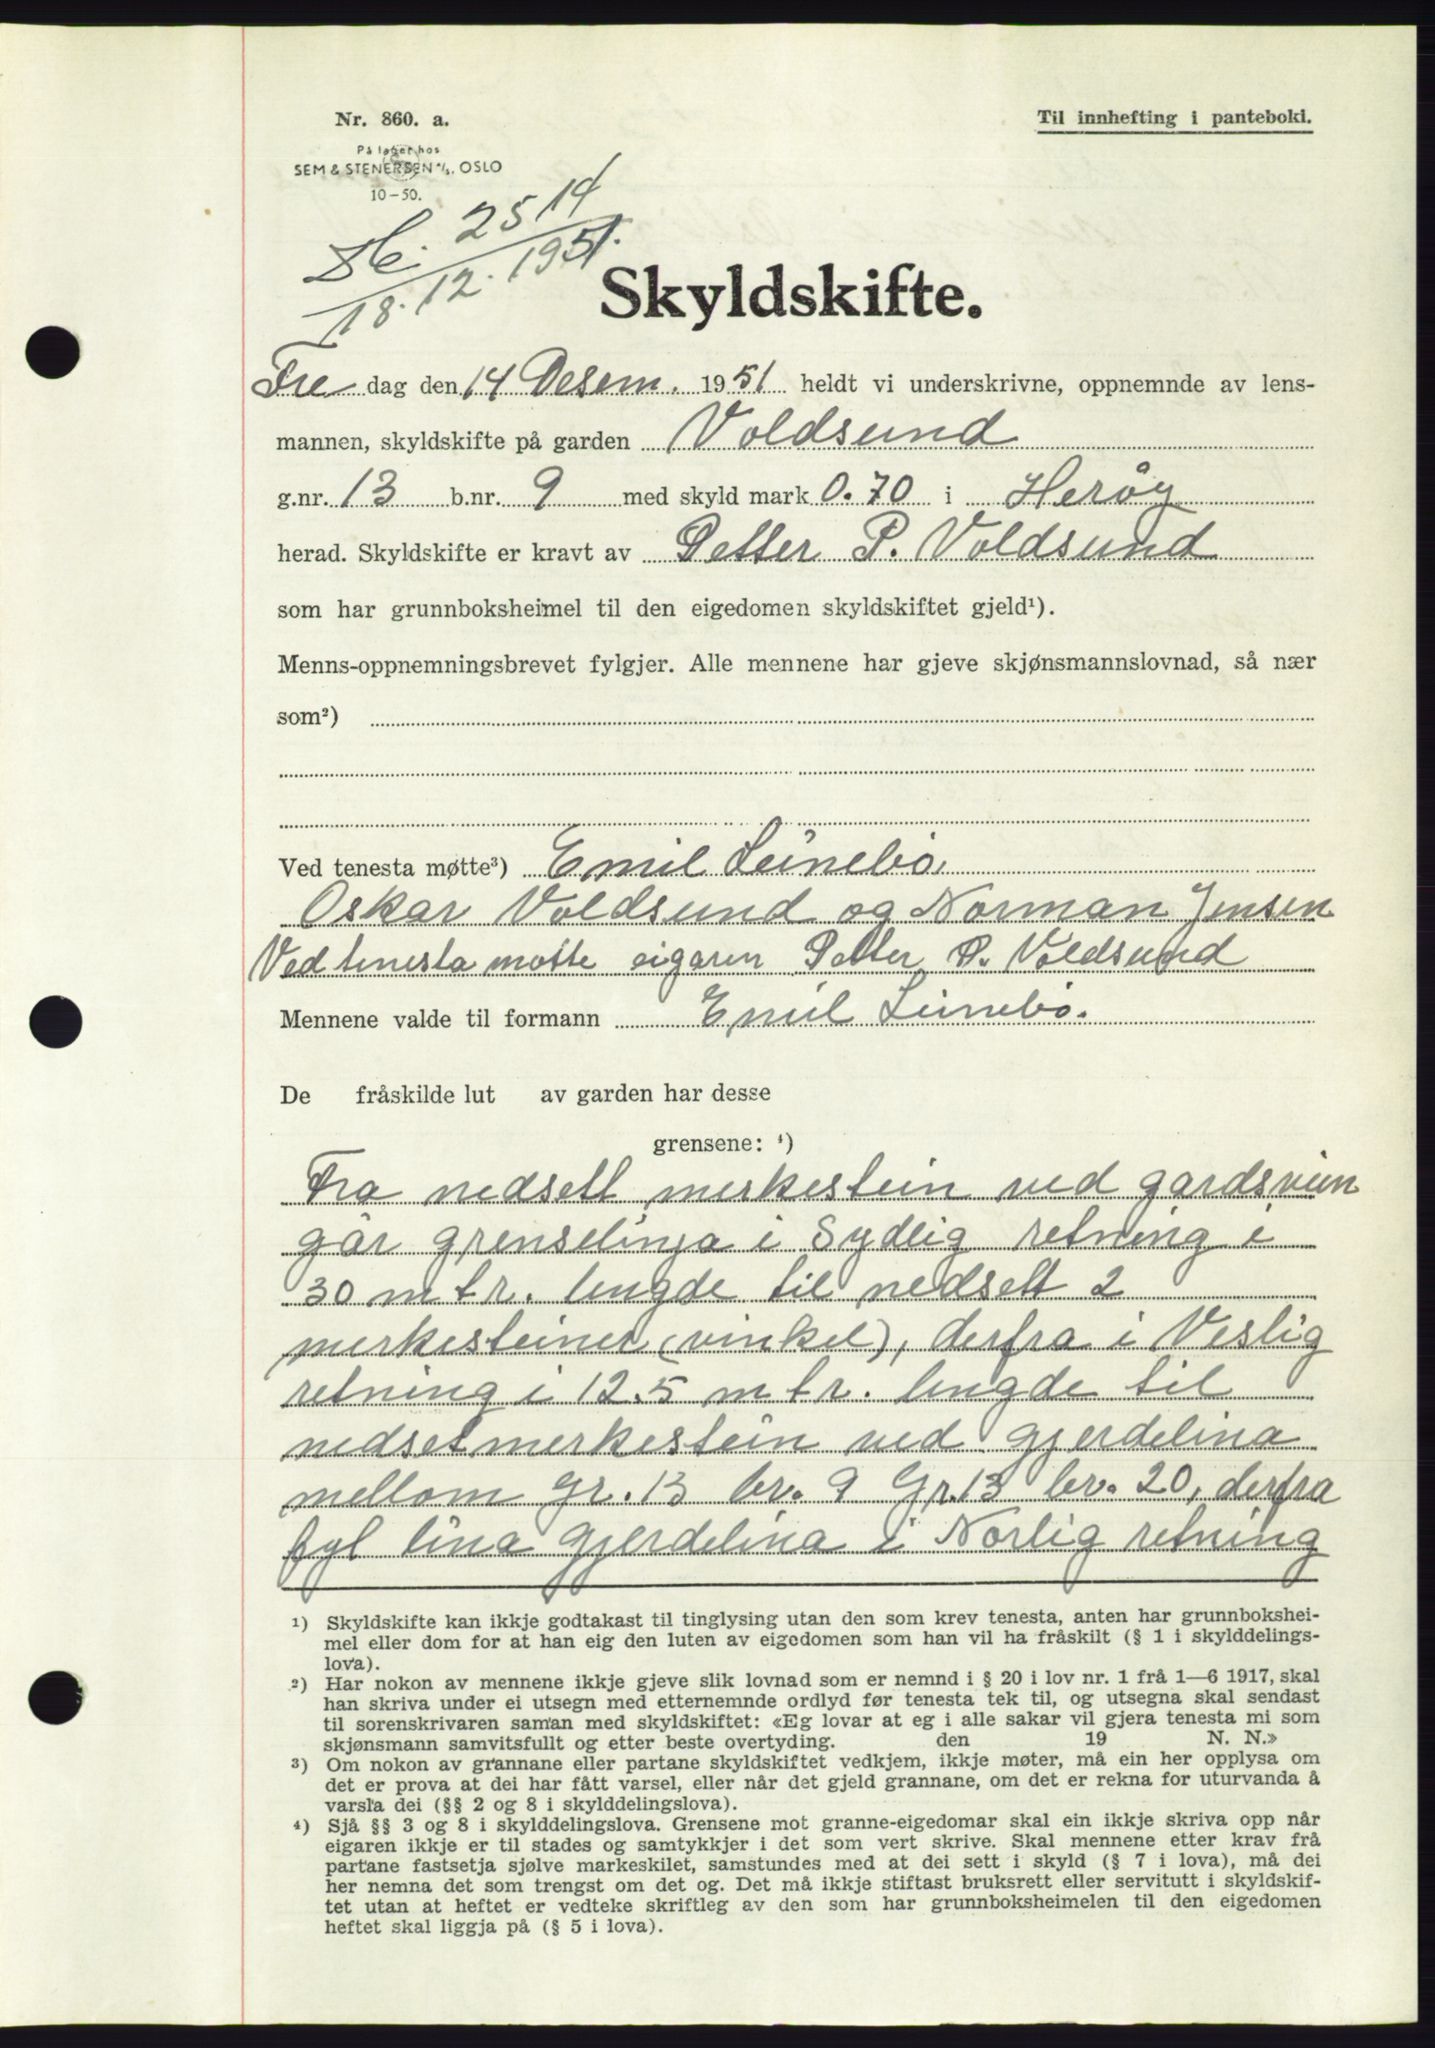 Nr. 860. a.
Til innhefting i panteboki.
På lager hos
SEM & STENERSEN A/S. OSLO
10-50.
2514
18.12.1951.
Skyldskifte.
Fre dag den 14 Desem. 1951 heldt vi underskrivne, oppnemnde av lens-
mannen, skyldskifte på garden Voldsund
g.nr. 13 b.nr. 9 med skyld mark 0.70 i Herøy
herad. Skyldskifte er kravt av Petter P. Voldsund
som har grunnboksheimel til den eigedomen skyldskiftet gjeld¹).
Menns-oppnemningsbrevet fylgjer. Alle mennene har gjeve skjønsmannslovnad, så nær
som²)
Ved tenesta møtte³) Emil Leinebø
Oskar Voldsund og Norman Jensen
Ved tenesta møtte eigaren Petter P. Voldsund
Mennene valde til formann Emil Leinebø.
De fråskilde lut av garden har desse
grensene: ⁴)
Fra nedsett merkestein ved gardsveien
går grenselinja i Sydlig retning i
30 mtr. lengde til nedsett 2
merkesteiner (vinkel), derfra i Veslig
retning i 12.5 mtr. lengde til
nedset merkestein ved gjerdelina
mellom Gr. 13 br. 9 Gr. 13 br. 20, derfra
fyl lina gjerdelina i Norlig retning
¹) Skyldskifte kan ikkje godtakast til tinglysing utan den som krev tenesta, anten har grunnbokshei-
mel eller dom for at han eig den luten av eigedomen som han vil ha fråskilt (§ 1 i skylddelings-
lova).
²) Har nokon av mennene ikkje gjeve slik lovnad som er nemnd i § 20 i lov nr. 1 frå 1—6 1917, skal
han skriva under ei utsegn med etternemnde ordlyd før tenesta tek til, og utsegna skal sendast
til sorenskrivaren saman med skyldskiftet: «Eg lovar at eg i alle sakar vil gjera tenesta mi som
skjønsmann samvitsfullt og etter beste overtyding. den 19 N. N.»
³) Om nokon av grannane eller partane skyldskiftet vedkjem, ikkje møter, må ein her opplysa om
det er prova at dei har fått varsel, eller når det gjeld grannane, om det er rekna for uturvanda å
varsla dei (§§ 2 og 8 i skylddelingslova).
⁴) Sjå §§ 3 og 8 i skylddelingslova. Grensene mot granne-eigedomar skal ein ikkje skriva opp når
eigaren ikkje er til stades og samtykkjer i det som vert skrive. Skal mennene etter krav frå
partane fastsetja sjølve markeskilet, samstundes med at dei sett i skyld (§ 7 i lova), må dei
her nemna det som trengst om det og. Det må ikkje stiftast bruksrett eller servitutt i skyldskif-
tet utan at heftet er vedteke skriftleg av den som har grunnboksheimelen til den eigedomen
heftet skal liggja på (§ 5 i lova).